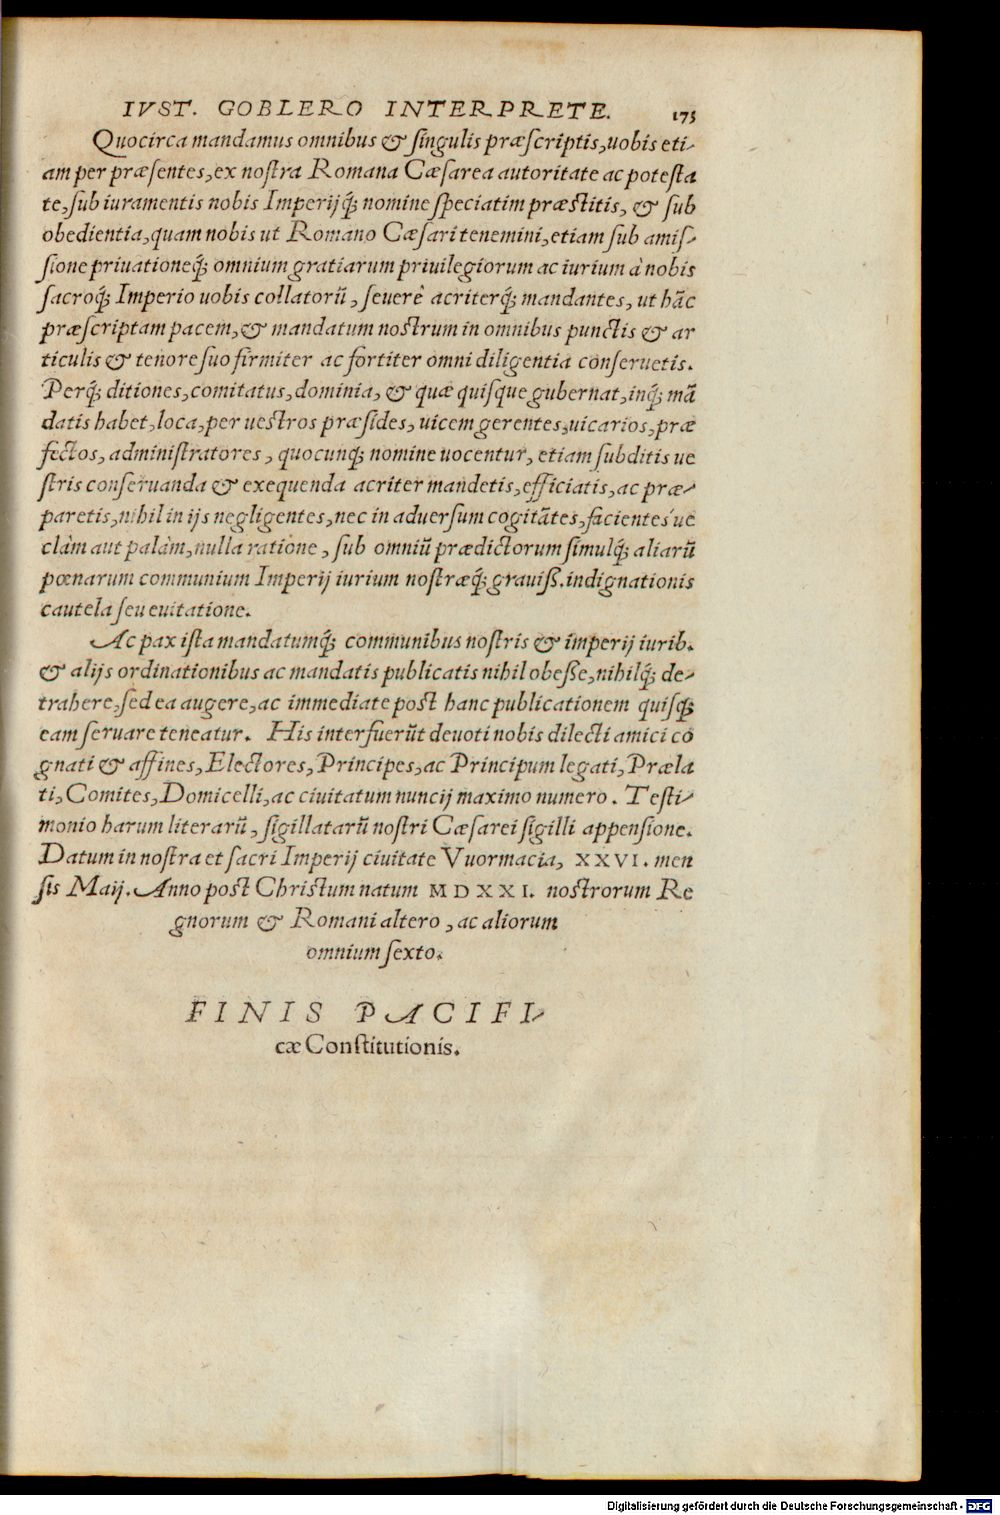 IVST. GOBLERO INTERPRETE. 175
Quocirca mandamus omnibus & ſingulis præſcriptis, uobis eti-
am per præſentes, ex noſtra Romana Cæſarea autoritate ac poteſta
te, ſub iuramentis nobis Imperijq́; nomine ſpeciatim præſtitis, & ſub
obedientia, quam nobis ut Romano Cæſari tenemini, etiam ſub amiſ-
ſione priuationeq́; omnium gratiarum priuilegiorum ac iurium à nobis
ſacroq́; Imperio uobis collatorū, ſeuerè acriterq́; mandantes, ut hãc
præſcriptam pacem, & mandatum noſtrum in omnibus punctis & ar
ticulis & tenore ſuo firmiter ac fortiter omni diligentia conſeruetis.
Perq́; ditiones, comitatus, dominia, & quæ quiſque gubernat, inq́; mã
datis habet, loca, per ueſtros præſides, uicem gerentes, uicarios, præ
fectos, adminiſtratores, quocunq́; nomine uocentur, etiam ſubditis ue
ſtris conſeruanda & exequenda acriter mandetis, efficiatis, ac præ-
paretis, nihil in ijs negligentes, nec in aduerſum cogitãtes, facientes ue
clàm aut palàm, nulla ratione, ſub omniū prædictorum ſimulq́; aliarū
pœnarum communium Imperij iurium noſtræq́; grauiſſ. indignationis
cautela ſeu euitatione.
Ac pax iſta mandatumq́; communibus noſtris & imperij iurib.
& alijs ordinationibus ac mandatis publicatis nihil obeſſe, nihilq́; de-
trahere, ſed ea augere, ac immediate poſt hanc publicationem quiſq́;
eam ſeruare teneatur. His interfuerūt deuoti nobis dilecti amici co
gnati & affines, Electores, Principes, ac Principum legati, Præla
ti, Comites, Domicelli, ac ciuitatum nuncij maximo numero. Teſti-
monio harum literarū, ſigillatarū noſtri Cæſarei ſigilli appenſione.
Datum in noſtra et ſacri Imperij ciuitate Vuormacia, XXVI. men
ſis Maij. Anno poſt Chriſtum natum MDXXI. noſtrorum Re
gnorum & Romani altero, ac aliorum
omnium ſexto.
FINIS PACIFI-
cæ Conſtitutionis.
Digitalisierung gefördert durch die Deutsche Forschungsgemeinschaft - DFG